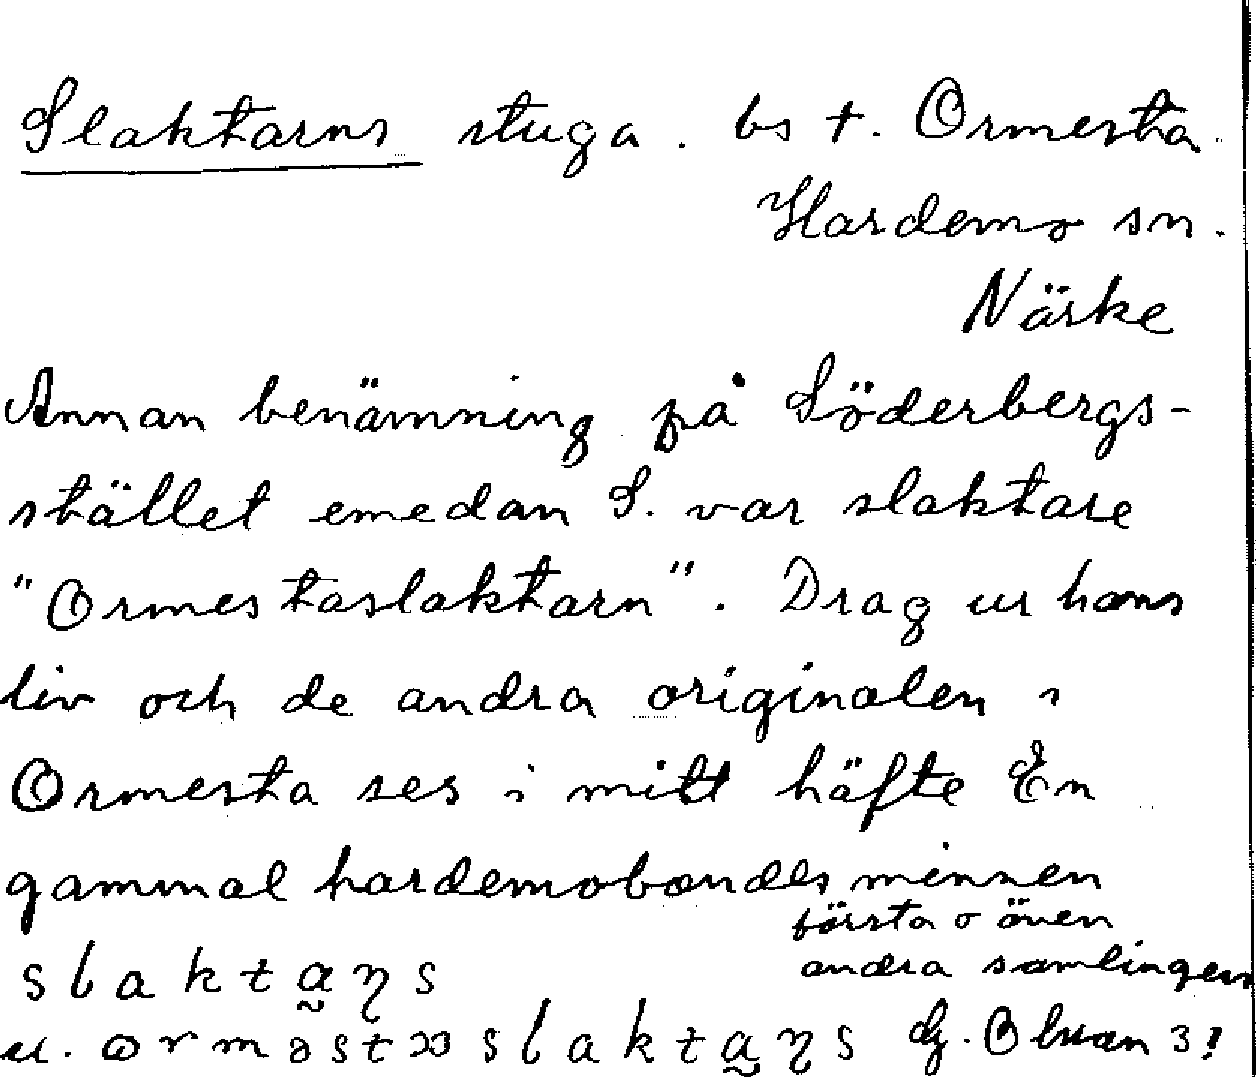 Slaktarns stuga. bs t. Ormesta.
Hardemo sn.
Närke
Annan benämning på Söderbergs-
stället emedan S. var slaktare
"Ormestaslaktarn". Drag ur hans
liv och de andra originalen i
Ormesta ses i mitt häfte En
gammal hardemobondes minnen
första o även
andra samlingen
slakta̰ɳs
u. orməstɑslakta̰ɳs